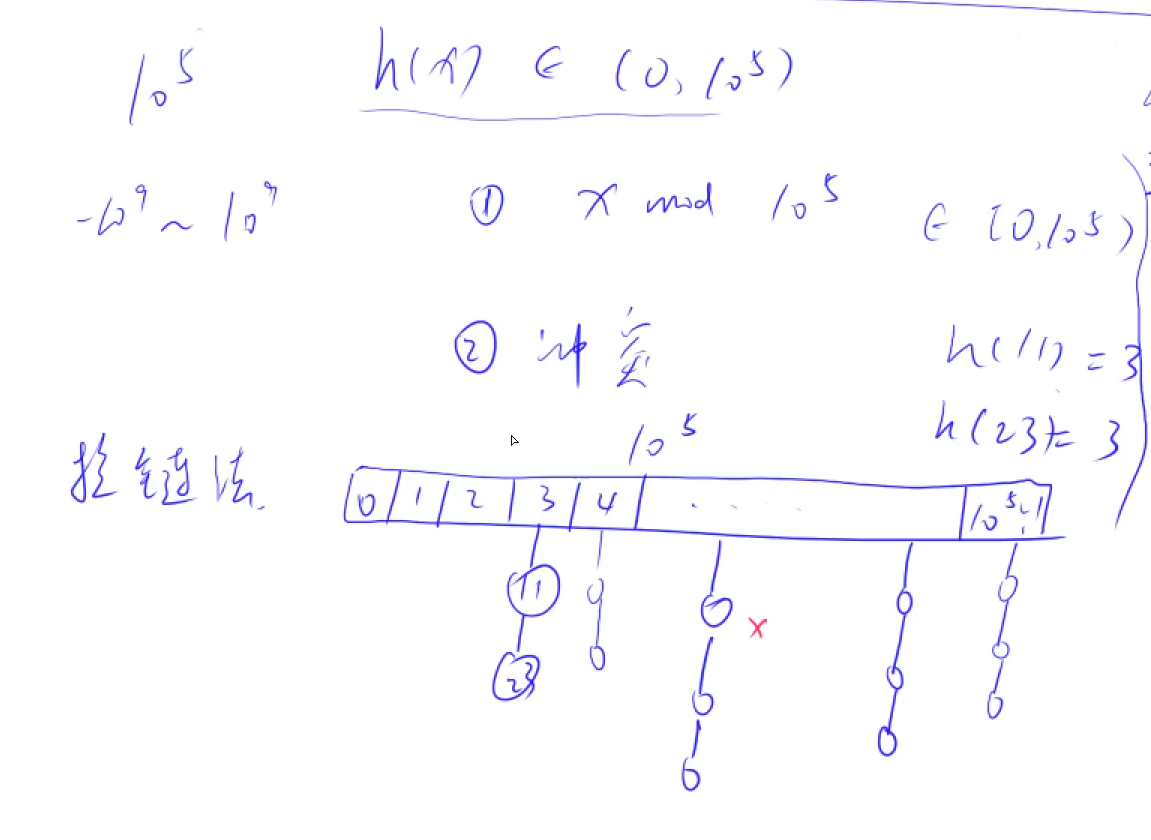 10⁵ h(x) ∈ (0, 10⁵)
-10⁹ ~ 10⁹ ① x mod 10⁵ ∈ [0, 10⁵)
② 冲突 h(11) = 3
h(23) = 3
拉链法. 10⁵
0 1 2 3 4 . . . . 10⁵-1
11
23
x